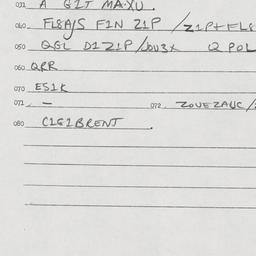 032 A GIT MAXU.
040 FL8A/S FIN Z1P /Z1P+FL8
050 QGL D1Z1P/JOU3X Q POL
060 QRR
070 ES1K
071. — 072. ZOUEZAUC/
080 C1G1BRENT.